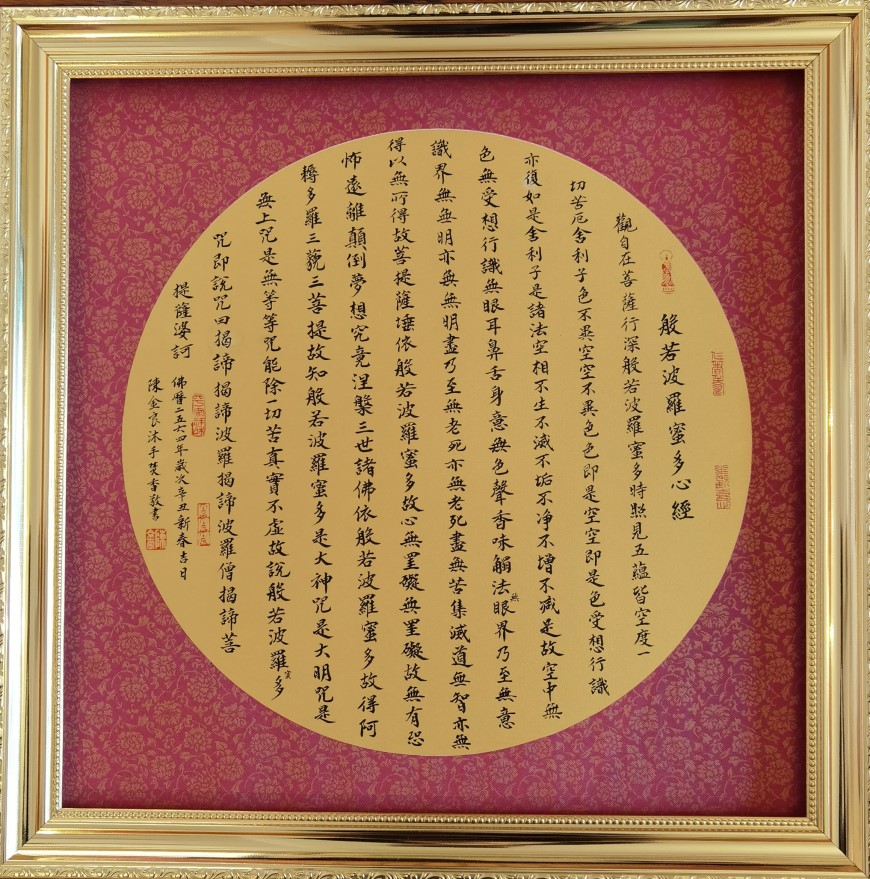 般若波羅蜜多心經
觀自在菩薩行深般若波羅蜜多時照見五蘊皆空度一
切苦厄舍利子色不異空空不異色色即是空空即是色受想行識
亦復如是舍利子是諸法空相不生不滅不垢不净不增不減是故空中無
色無受想行識無眼耳鼻舌身意無色聲香味觸法無眼界乃至無意
識界無無明亦無無明盡乃至無老死亦無老死盡無苦集滅道無智亦無
得以無所得故菩提薩埵依般若波羅蜜多故心無罣礙無罣礙故無有恐
怖遠離顛倒夢想究竟涅槃三世諸佛依般若波羅蜜多故得阿
耨多羅三藐三菩提故知般若波羅蜜多是大神咒是大明咒是
無上咒是無等等咒能除一切苦真實不虛故說般若波羅蜜多
咒即說咒曰揭諦揭諦波羅揭諦波羅僧揭諦菩
提薩婆訶
佛曆二五六四年歲次辛丑新春吉日
陳金良沐手焚香敬書